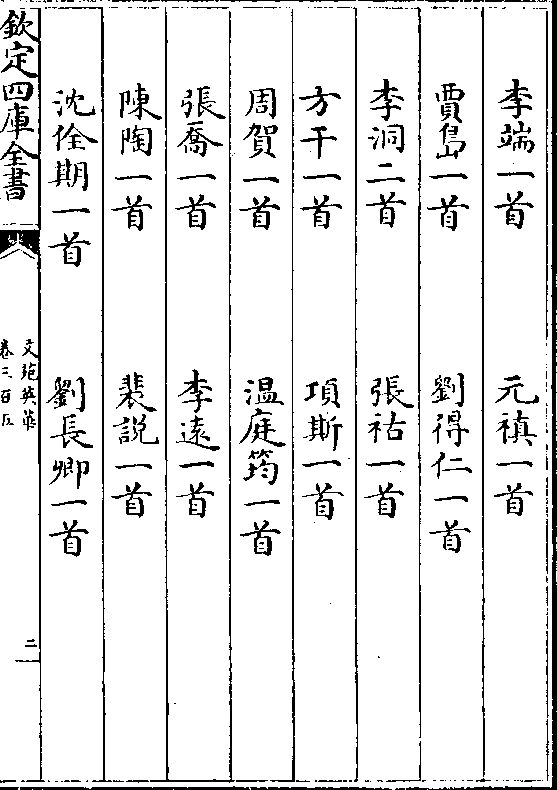 李端一首　元禛一首
賈島一首　劉得仁一首
李洞二首　張祜一首
方干一首　項斯一首
周賀一首　温庭筠一首
張喬一首　李遠一首
陳陶一首　裴說一首
沈佺期一首　劉長卿一首
欽定四庫全書
文苑英華
卷三百五
二